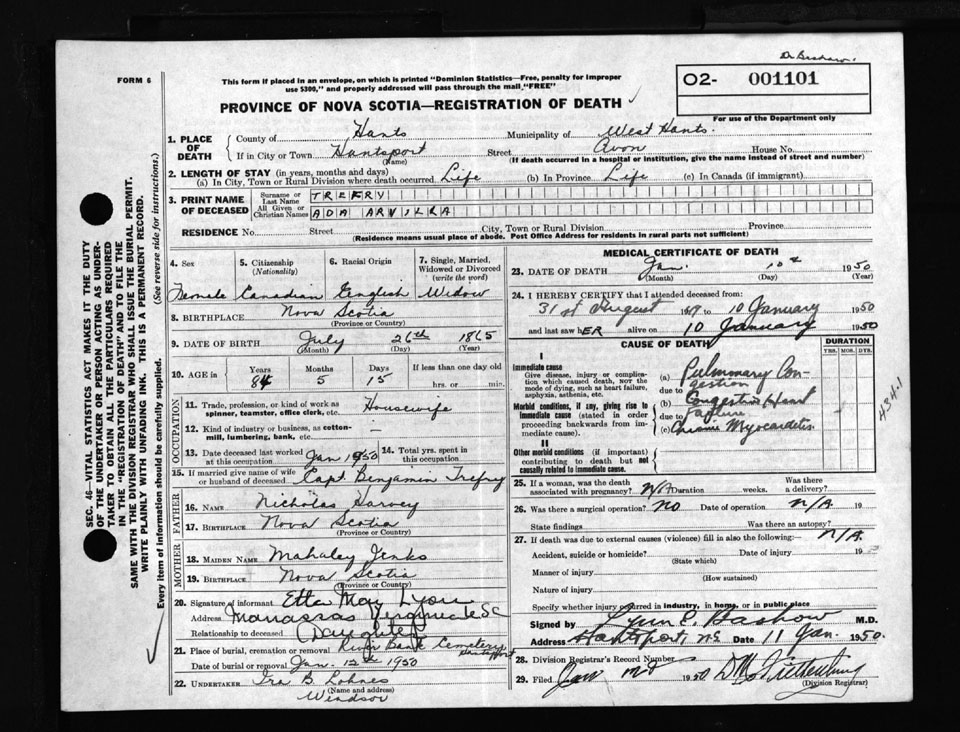 FORM 6
This form if placed in an envelope, on which is printed "Dominion Statistics—Free, penalty for improper
use $300," and properly addressed will pass through the mail "FREE"
Dr Bashow.
O2- 001101
For use of the Department only
PROVINCE OF NOVA SCOTIA—REGISTRATION OF DEATH ✓
1. PLACE OF DEATH { County of Hants Municipality of West Hants.
If in City or Town Hantsport Street Avon House No.
(Name) (If death occurred in a hospital or institution, give the name instead of street and number)
2. LENGTH OF STAY (in years, months and days)
(a) In City, Town or Rural Division where death occurred Life (b) In Province Life (c) In Canada (if immigrant)
3. PRINT NAME OF DECEASED { Surname or Last Name TREFRY
All Given or Christian Names ADA ARVILLA
RESIDENCE No. Street City, Town or Rural Division Province
(Residence means usual place of abode. Post Office Address for residents in rural parts not sufficient)
4. Sex 5. Citizenship (Nationality) 6. Racial Origin 7. Single, Married, Widowed or Divorced (write the word)
Female Canadian English Widow
8. BIRTHPLACE Nova Scotia
(Province or Country)
9. DATE OF BIRTH July 26th 1865
(Month) (Day) (Year)
10. AGE in { Years Months Days If less than one day old
84 5 15 hrs. or min.
OCCUPATION
11. Trade, profession, or kind of work as spinner, teamster, office clerk, etc. Housewife
12. Kind of industry or business, as cotton-mill, lumbering, bank, etc. —
13. Date deceased last worked at this occupation Jan 1950 14. Total yrs. spent in this occupation
15. If married give name of wife or husband of deceased Capt. Benjamin Trefry
FATHER
16. NAME Nicholas Harvey
17. BIRTHPLACE Nova Scotia
MOTHER
18. MAIDEN NAME Mahaley Jenks
19. BIRTHPLACE Nova Scotia
(Province or Country)
20. Signature of informant Etta May Lyon
Address Manassas Virginia
Relationship to deceased (Daughter)
21. Place of burial, cremation or removal River Bank Cemetery Hantsport
Date of burial or removal Jan. 12th 1950
22. UNDERTAKER Ira B. Lohnes
(Name and address)
Windsor
MEDICAL CERTIFICATE OF DEATH
23. DATE OF DEATH Jan. 10th 1950
(Month) (Day)
24. I HEREBY CERTIFY that I attended deceased from:
31st August 1949 to 10 January 1950
and last saw hER alive on 10 January 1950
CAUSE OF DEATH DURATION
YRS. MOS. DYS.
I
Immediate cause
Give disease, injury or complication which caused death, NOT the mode of dying, such as heart failure, asphyxia, asthenia, etc.
(a) Pulmonary Congestion
due to
Morbid conditions, if any, giving rise to immediate cause (stated in order proceeding backwards from immediate cause).
(b) Congestive Heart Failure
due to
(c) Chronic Myocarditis
434.1
II
Other morbid conditions (if important) contributing to death but not causally related to immediate cause.
25. If a woman, was the death associated with pregnancy? No Duration weeks. Was there a delivery?
26. Was there a surgical operation? No Date of operation N/A. 19
State findings Was there an autopsy?
27. If death was due to external causes (violence) fill in also the following:— N/A.
Accident, suicide or homicide? Date of injury 19
(State which)
Manner of injury
(How sustained)
Nature of injury
Specify whether injury occurred in industry, in home, or in public place
Signed by Lynn E. Bashow M.D.
Address Hantsport, NS Date 11 Jan. 1950.
28. Division Registrar's Record Number
29. Filed Jan 1950
(Division Registrar)
SEC. 46—VITAL STATISTICS ACT MAKES IT THE DUTY
OF THE UNDERTAKER OR PERSON ACTING AS UNDER-
TAKER TO OBTAIN ALL THE PARTICULARS REQUIRED
IN THE "REGISTRATION OF DEATH" AND TO FILE THE
SAME WITH THE DIVISION REGISTRAR WHO SHALL ISSUE THE BURIAL PERMIT.
WRITE PLAINLY WITH UNFADING INK. THIS IS A PERMANENT RECORD.
Every item of information should be carefully supplied. (See reverse side for instructions.)